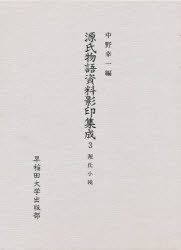 中野幸一編
源氏物語資料影印集成
3
源氏小鏡
早稲田大学出版部